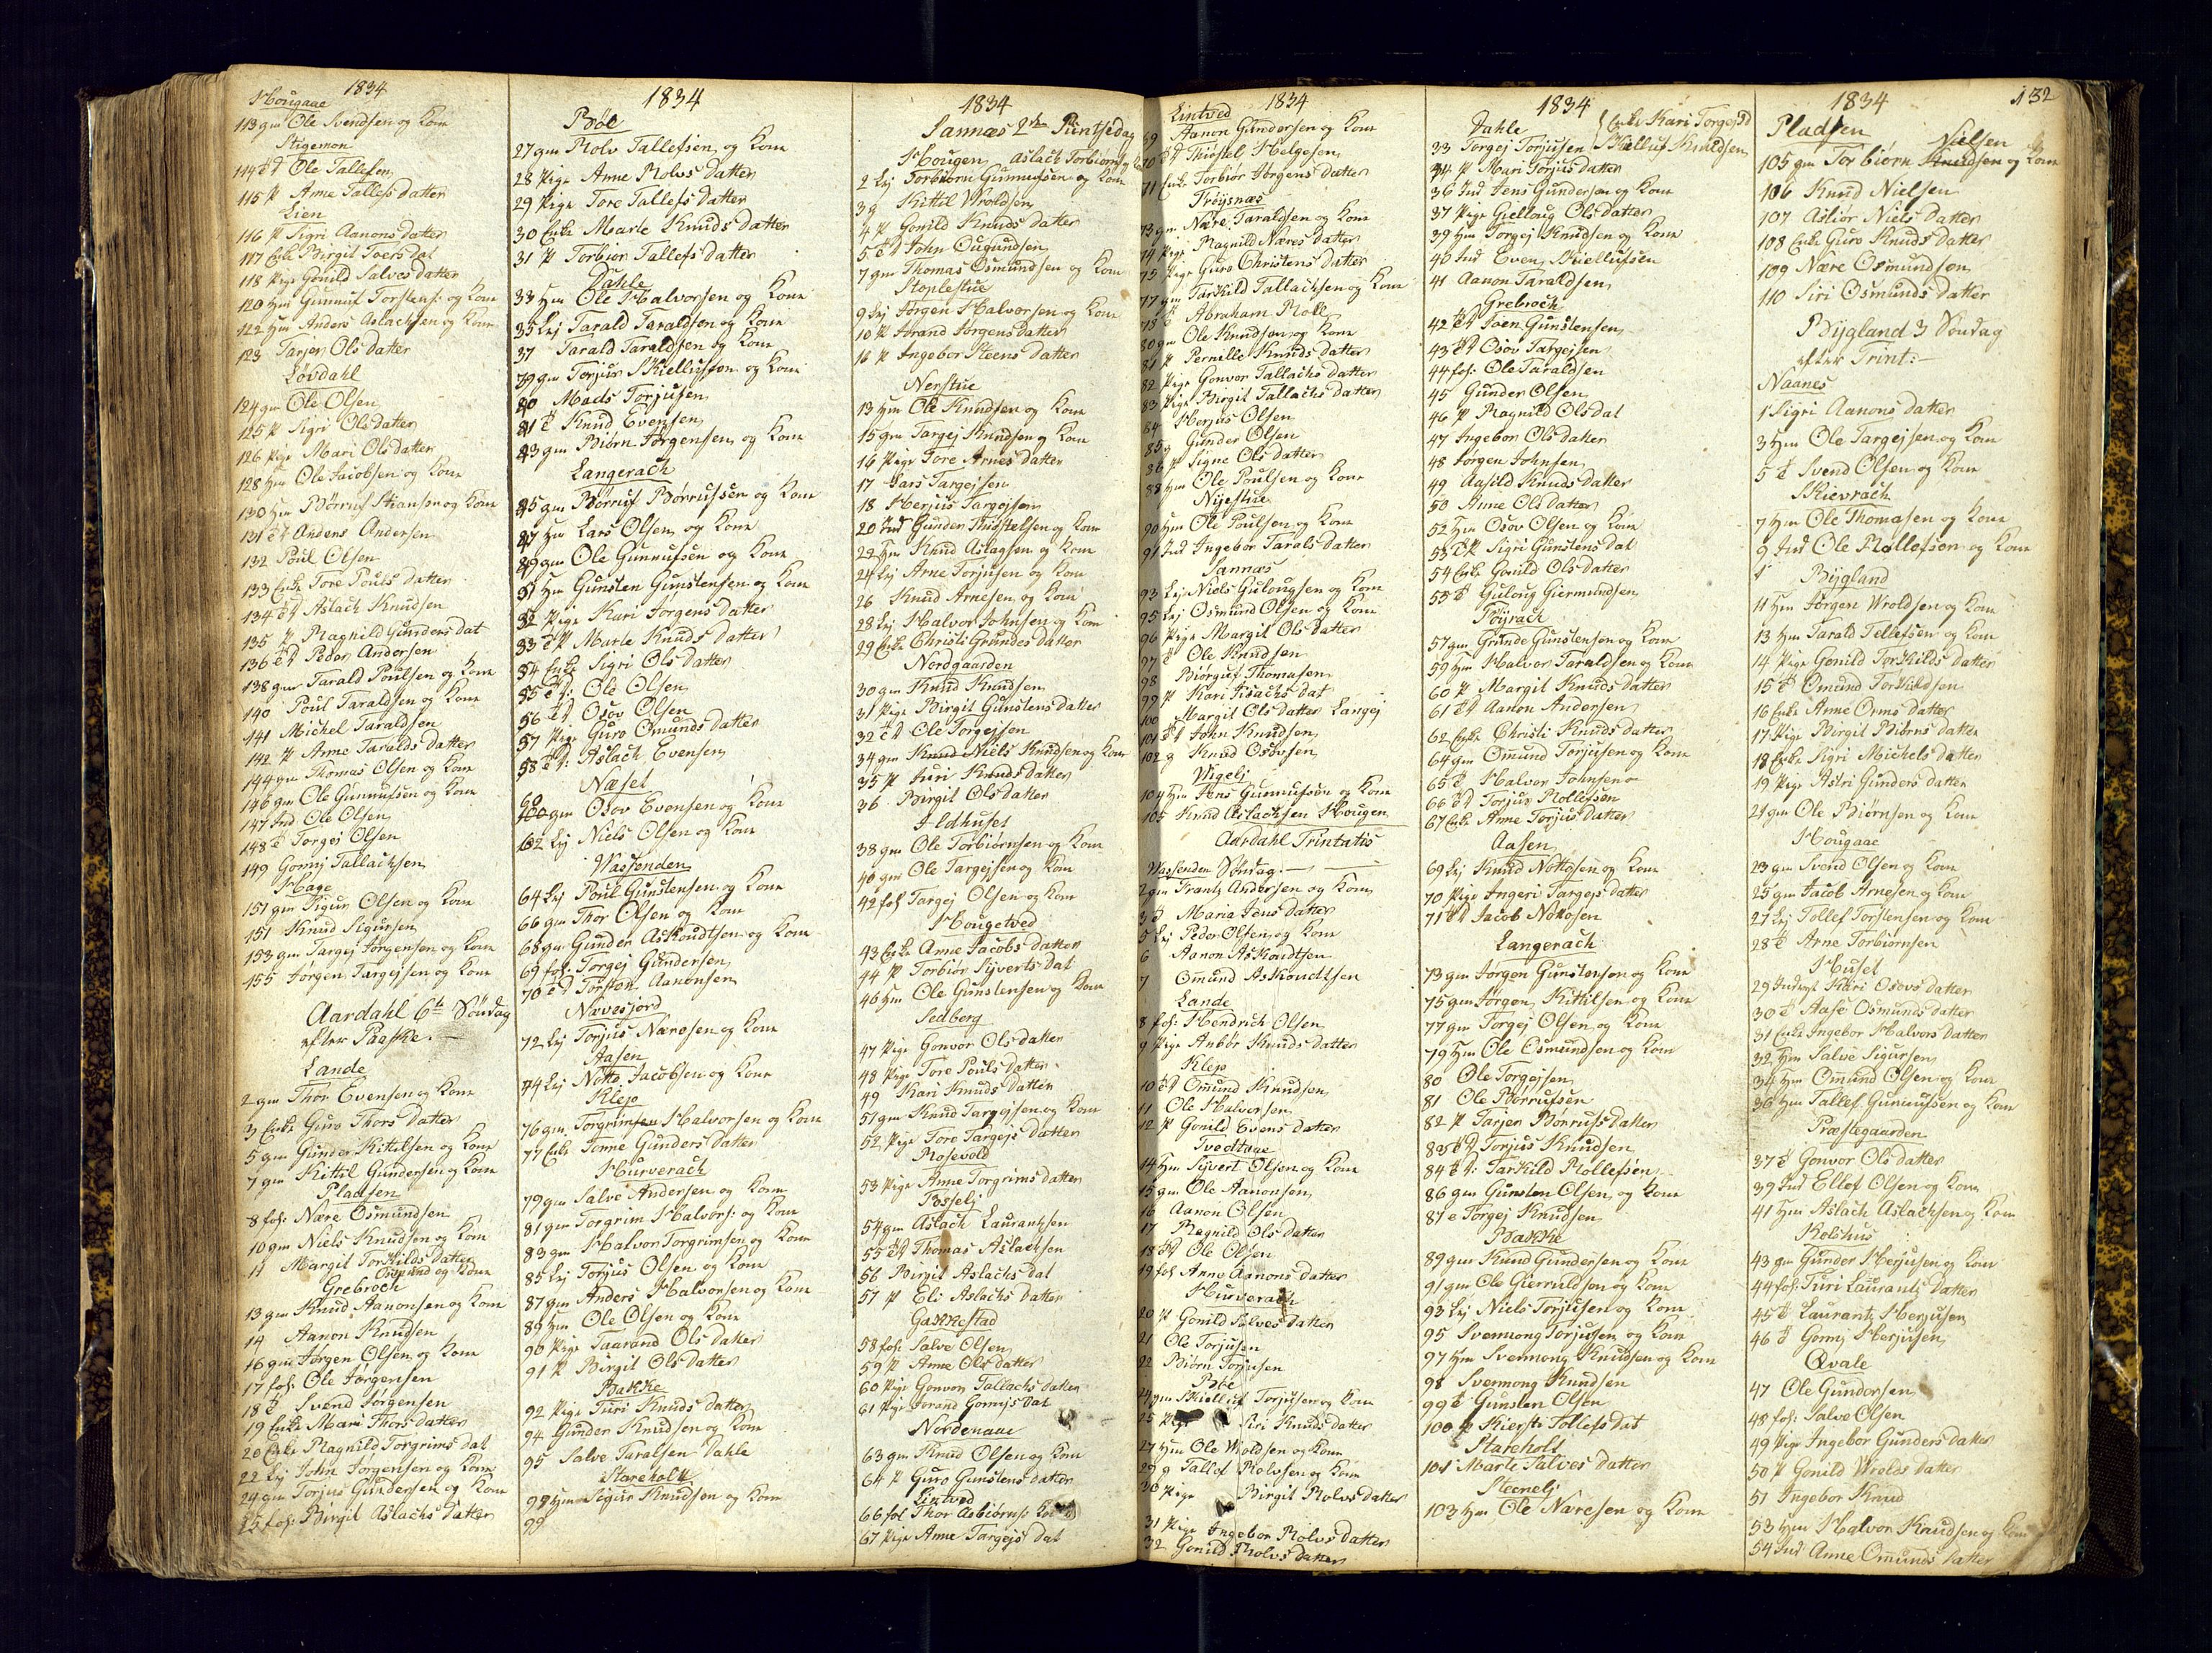 1834
Hougaae
113 gm Ole Svendsen og Kone
Stigemon
114 Ole Tallefsen
115 P Anne Tallefs datter
Lien
116 P Sigri Aanons datter
117 Enke Birgit Toers Dat
118 Pige Gonild Salves datter
120 Hm Gunnuf Torstens: og Kone
122 Hm Anders Aslachsen og Kone
123 Tarjer Ols datter
Løvdahl
124 gm Ole Olsen
125 P Sigri Ols datter
126 Pige Mari Ols datter
128 Hm Ole Jacobsen og Kone
130 Hm Børruf og Kone
131 Anders Andersen
132 Poul Olsen
133 Enke Tore Pouls datter
134 Aslach Knudsen
135 P Ragnild Gunders dat
136 Peder Andersen
138 gm Tarald Poulsen og Kone
140 Poul Taraldsen og Kone
141 Michel Taraldsen
142 P Anne Taralds datter
144 gm Thomas Olsen og Kone
146 gm Ole Gunnufsen og Kone
147 Ind Ole Olsen
148 Torgej Olsen
149 Gonnj Tallachsen
Hage
151 gm Sigur Olsen og Kone
151 Knud Sigursen
153 gm Targej Jørgensen og Kone
155 Jørgen Targejsen og Kone
Aardahl 6te Søndag
efter Paaske.
Lande
2 gm Thor Evensen og Kone
3 Enke Guro Thors datter
5 gm Gunder Kittelsen og Kone
7 gm Kittil Gundersen og Kone
Pladsen
8 fos: Nære Osmundsen
10 gm Niels Knudsen og Kone
11 Margit Torkilds datter
Omund og Kone
Grebroch
13 gm Knud Aanonsen og Kone
14 Aanon Knudsen
16 gm Jørgen Olsen og Kone
17 fos: Ole Jørgensen
18 Svend Jørgensen
19 Enke Mari Thors datter
20 Enke Ragnild Torgrims dat
22 Lej John Jørgensen og Kone
24 gm Torjus Gundersen og Kone
25 fos: Birgit Aslachs datter
1834
Bøe
27 gm Rolv Tallefsen og Kone
28 Pige Anne Rolvs datter
29 Pige Tore Tallefs datter
30 Enke Marte Knuds datter
31 P Torbior Tallefs datter
Dahle
33 Hm Ole Halvorsen og Kone
35 Lej Tarald Taraldsen og Kone
37 Tarald Taraldsen og Kone
39 gm Torjus Skiellufsen og Kone
40 Mads Torjusen
41 Knud Evensen
43 gm Biørn Jørgensen og Kone
Langerach
45 gm Børruf Børrufsen og Kone
47 Hm Lars Olsen og Kone
49 gm Ole Gunnufsen og Kone
51 Hm Gunsten Gunstensen og Kone
52 Pige Kari Jørgens datter
53 P Marte Knuds datter
54 Enke Sigri Ols datter
55 Ole Olsen
56 Osov Olsen
57 Pige Guro Omunds datter
58 Aslach Evensen
Næset
60 gm Osov Evensen og Kone
62 Lej Niels Olsen og Kone
Wassenden
64 Lej Poul Gunstensen og Kone
66 gm Thor Olsen og Kone
68 gm Gunder Askoudtsen og Kone
69 fos: Torgej Gundersen
70 Torsten Aanonsen
Nævesjord
72 Lej Torjus Næresen og Kone
Aasen
74 Lej Notto Jacobsen og Kone
Klep
76 gm Torgrim Halvorsen og Kone
77 Enke Tonne Gunders datter
Hurverach
79 gm Salve Andersen og Kone
81 gm Torgrim Halvors: og Kone
83 gm Halvor Torgrimsen og Kone
85 Lej Torjus Olsen og Kone
87 gm Anders Halvorsen og Kone
89 Hm Ole Olsen og Kone
90 Pige Taarand Ols datter
91 P Birgit Ols datter
Bakke
92 Pige Turi Knuds datter
94 Gunder Knudsen og Kone
95 Salve Taralsen Dahle
Stareholt
97 Hm Sigur Knudsen og Kone
98
1834
Sannæs 2den Pintsedag
Hougen Aslach Torbiørns og
2 Lej Torbiørn Gunnufsen og Kone
3 g Kittil Wroldsen
4 P Gonild Knuds datter
5 John Ougundsen
7 gm Thomas Osmundsen og Kone
Stoplestue
9 Lej Jørgen Halvorsen og Kone
10 P Jorand Jørgens datter
16 P Ingebor Steens datter
Nerstue
13 Hm Ole Knudsen og Kone
15 gm Targej Knudsen og Kone
16 Pige Tore Arnes datter
17 Lars Targejsen
18 Herjus Targejsen
20 Ind Gunder Thostelsen og Kone
22 Hm Knud Aslagsen og Kone
24 Lej Arne Torjusen og Kone
26 Knud Arnesen og Kone
28 Lej Halvor Johnsen og Kone
29 Enke Christi Grundes datter
Nordgaarden
30 gm Knud Knudsen
31 Pige Birgit Gunstens datter
32 Ole Torgejsen
34 gm Niels Knudsen og Kone
35 P Juri Knuds datter
36 Birgit Ols datter
Ildhuset
38 gm Ole Torbiørnsen og Kone
40 gm Ole Targejsen og Kone
42 fos Targej Olsen og Kone
Hougetved
43 Enke Anne Jacobs datter
44 P Torbior Syverts Dat
46 Hm Ole Gunstensen og Kone
Sedberg
47 Pige Gonvor Ols datter
48 Pige Tore Pouls datter
49 Kari Knuds datter
51 gm Knud Targejsen og Kone
52 Pige Tore Targejs datter
Rosevold
53 Pige Anne Torgrims datter
Bosselj
54 gm Aslach Laurantsen
55 Thomas Aslachsen
56 Birgit Aslachs dat
57 P Eli Aslachs datter
Gakkestad
58 fos: Salve Olsen
59 P Anne Ols datter
60 Pige Gonvor Tallachs datter
61 Pige Jorand Gonnjs Dat
Nordenaae
63 gm Knud Olsen og Kone
64 P Guro Gunstens datter
Lintved
66 fol Thor Asbiørns
67 Pige Anne Targejs dat
1834
Lintved
69 Aanon Gundersen og Kone
70 Thostel Helgesen
71 Enke Torbior Jørgens datter
Frøysnæs
73 gm Nære Taraldsen og Kone
74 Pige Ragnild Næres datter
75 Pige Guro Christens datter
77 gm Tarkild Tallachsen og Kone
78 Abraham Moll
80 gm Ole Knudsen og Kone
81 P Pernille Knuds datter
82 Pige Gonvor Tallachs datter
83 Pige Birgit Tallachs datter
84 Herjus Olsen
85 g Gunder Olsen
86 P Signe Ols datter
88 Hm Ole Poulsen og Kone
Nyestue
90 Hm Ole Poulsen og Kone
91 Ind Ingebor Tarals datter
Sannæs
93 Lej Niels Gulougsen og Kone
95 Lej Osmund Olsen og Kone
96 Pige Margit Ols datter
97 Ole Knudsen
98 Biørguf Thomasen
99 P Kari Isachs dat
100 Margit Ols datter Langej
101 John Knudsen
102 g Knud Osovsen
Wigelj
104 Hm Jens Gunnufsen og Kone
105 Knud Aslachsen Hougen
Aardahl Trinitatis
Wassenden Søndag
2 gm Frantz Andersen og Kone
3 Maria Jens datter
5 Lej Peder Olsen og Kone
6 Aanon Askoudtsen
7 Omund Askoudtsen
Lande
8 fos: Hendrich Olsen
9 Pige Anbor Knuds datter
Klep
10 Omund Knudsen
11 Ole Halvorsen
12 P Gonild Evens datter
Tvedtaae
14 Hm Syvert Olsen og Kone
15 gm Ole Aanonsen
16 Aanon Olsen
17 Ragnild Ols datter
18 Ole Olsen
19 fos Anne Aanons datter
Hurverach
20 P Gonild Salves datter
21 Ole Torjusen
22 Biørn Torjusen
Bøe
24 gm Skielluf Torjusen og Kone
25 Siri Knuds datter
27 Hm Ole Woldsen og Kone
29 g Tallef Rolvsen og Kone
30 Pige Birgit Rolvs datter
31 Pige Ingebor Rolvs datter
32 Gonild Rolvs datter
1834
Dahle
Enke Kari Torgejsd
33 Torgej Torjusen Skielluf Knudsen
34 P Mari Torjus datter
36 Ind Jens Gundersen og Kone
37 Pige Giellaug Ols datter
39 Hm Torgej Knudsen og Kone
40 Ind Even Skiellufsen
41 Aanon Taraldsen
Grebroch
42 Toen Gunstensen
43 Osov Targejsen
44 fos: Ole Taraldsen
45 Gunder Olsen
46 P Ragnild Ols dat
47 Ingebor Ols datter
48 Jørgen Johnsen
49 Aasild Knuds datter
50 Anne Ols datter
52 Hm Osov Olsen og Kone
53 P Sigri Gunstens dat
54 Enke Gonild Ols datter
55 Guloug Giermundsen
Røyrach
57 gm Grunde Gunstensen og Kone
59 Hm Halvor Taraldsen og Kone
60 P Margit Knuds datter
61 Aanon Andersen
62 Enke Christi Knuds datter
64 gm Omund Torjusen og Kone
65 Halvor Johnsen
66 Torjus Rollefsen
67 Enke Anne Torjus datter
Aasen
69 Lej Knud Nottosen og Kone
70 Pige Ingeri Targejs datter
71 Jacob Notosen
Langerach
73 gm Jørgen Gunstensen og Kone
75 gm Jørgen Kittilsen og Kone
77 gm Torgej Olsen og Kone
79 Hm Ole Osmundsen og Kone
80 Ole Torgejsen
81 Ole Børrufsen
82 P Tarjer Børrufs datter
83 Torjus Knudsen
84 Tarkild Rollefsen
86 gm Gunsten Olsen og Kone
87 Torgej Knudsen
Bakke
89 gm Knud Gundersen og Kone
91 gm Ole Gierruldsen og Kone
93 Lej Niels Torjusen og Kone
95 Svennong Torjusen og Kone
97 Hm Svennong Knudsen og Kone
98 Svennong Knudsen
99 Gunsten Olsen
100 P Kiersti Tollefs Dat
Stareholt
101 Marte Salves datter
Steenelj
103 Hm Ole Næresen og Kone
1834
132
Pladsen
Nielsen
105 gm Torbiørn Knudsen og Kone
106 Knud Nielsen
107 Aslior Niels datter
108 Enke Guro Knuds datter
109 Nære Osmundsen
110 Siri Osmunds datter
Bygland 3 Søndag
efter Trint:
Naanes
1 Sigri Aanons datter
3 Hm Ole Targejsen og Kone
5 Svend Olsen og Kone
Skievrach
7 Hm Ole Thomasen og Kone
9 Ind Ole Rollefsen og Kone
Bygland
11 Hm Jørgen Wroldsen og Kone
13 Hm Tarald Tellefsen og Kone
14 Pige Gonild Torkilds datter
15 Omund Torkildsen
16 Enke Anne Orms datter
17 Pige Birgit Biørns datter
18 Enke Sigri Michels datter
19 Pige Astri Gunders datter
21 gm Ole Biørnsen og Kone
Hougaae
23 gm Svend Olsen og Kone
25 gm Jacob Arnesen og Kone
27 Lej Tollef Torstensen og Kone
28 Arne Torbiørnsen
Huset
29 Kari Osovs datter
30 Aase Osmunds datter
31 Enke Ingebor Halvors datter
32 Hm Salve Sigursen
34 Hm Omund Olsen og Kone
36 Hm Tallef Gunnufsen og Kone
Præstegaarden
37 Gonvor Ols datter
39 Ind Ellef Olsen og Kone
41 Hm Aslach Aslachsen og Kone
Kolshus
43 gm Gunder Herjusen og Kone
44 fos: Turi Laurantz datter
45 Laurantz Herjusen
46 Gonnj Herjusen
Qvale
47 Ole Gundersen
48 fos: Salve Olsen
49 Pige Ingebor Gunders datter
50 P Gonild Wrolds datter
51 Ingebor Knud
53 Hm Halvor Knudsen og Kone
54 Ind Anne Omunds datter